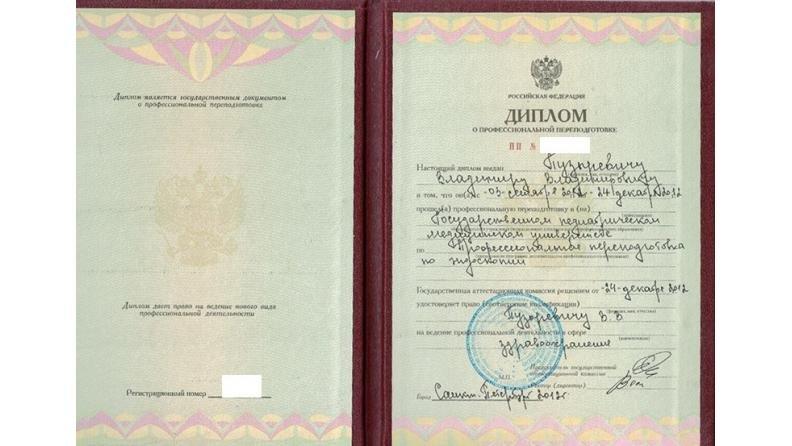 Диплом является государственным документом
о профессиональной переподготовке
Диплом дает право на ведение нового вида
профессиональной деятельности
Регистрационный номер
РОССИЙСКАЯ ФЕДЕРАЦИЯ
ДИПЛОМ
О ПРОФЕССИОНАЛЬНОЙ ПЕРЕПОДГОТОВКЕ
ПП №
Настоящий диплом выдан Пузыревичу
Владимиру Владимировичу
в том, что он(а) с «03» сентября 2012 «24» декабря 2012
прошел(а) профессиональную переподготовку в (на)
Государственном педиатрическом
медицинском университете
по Профессиональная переподготовка
по эндоскопии
Государственная аттестационная комиссия решением от «24» декабря 2012
удостоверяет право (соответствие квалификации)
Пузыревичу В.В
на ведение профессиональной деятельности в сфере
здравоохранение
Председатель государственной
аттестационной комиссии
М.П.
Ректор (директор)
Город Санкт-Петербург 2012 г.